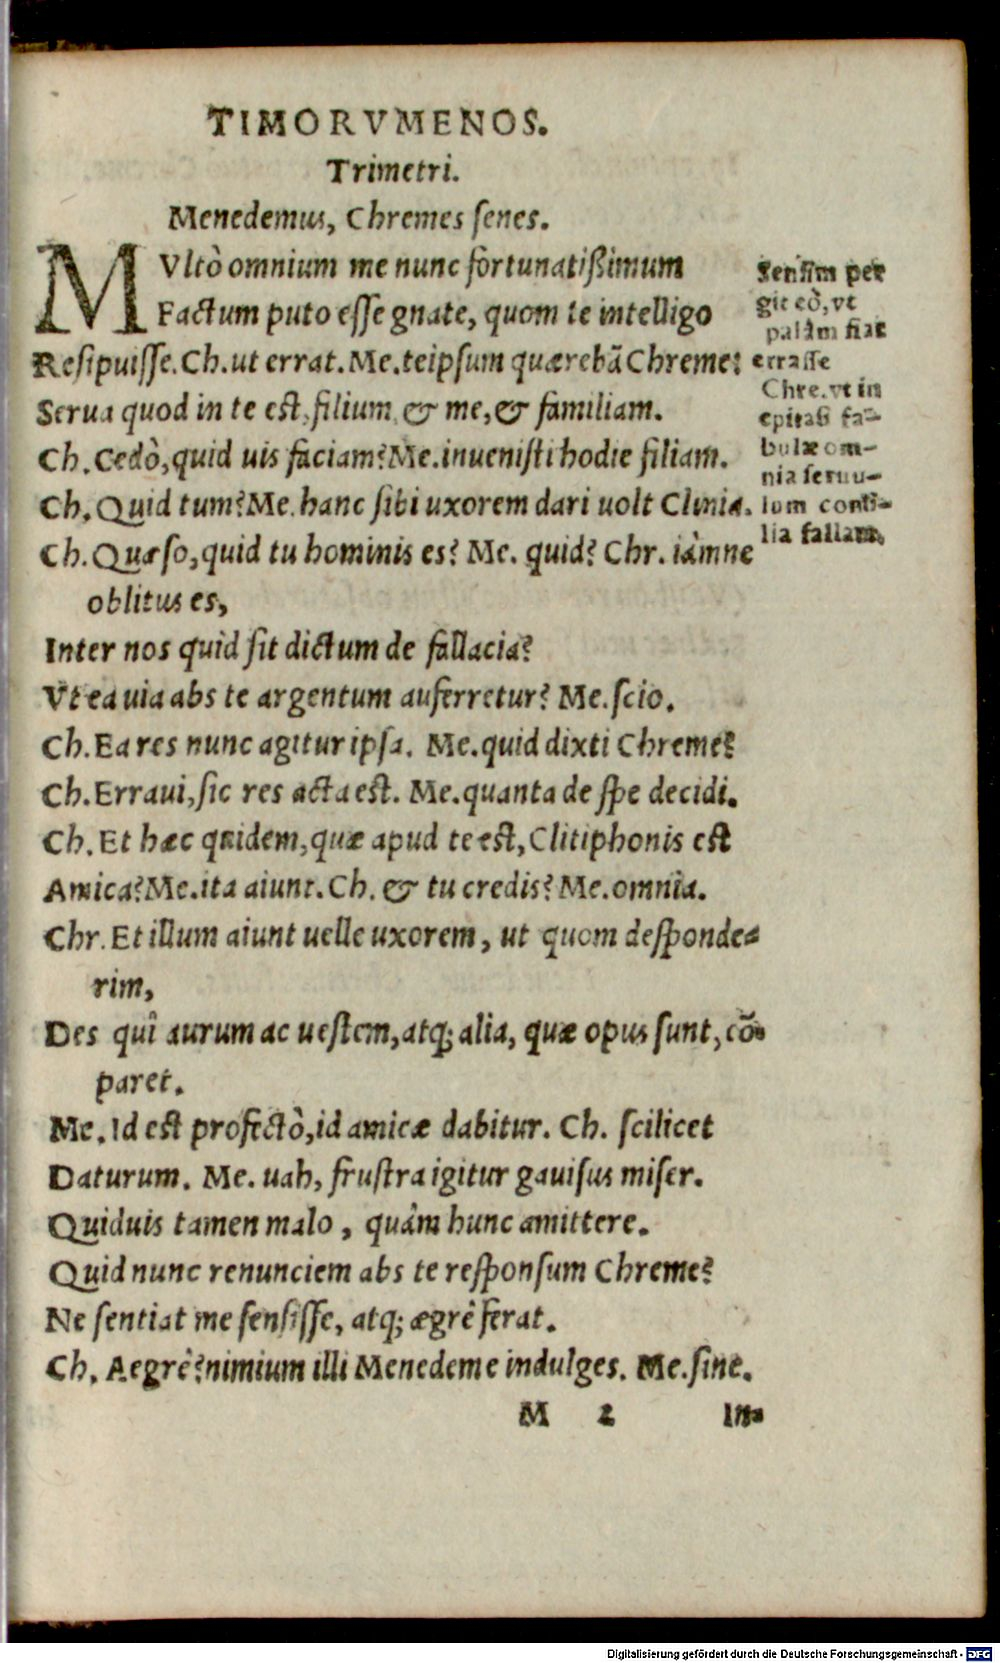 TIMORVMENOS.
Trimetri.
Menedemus, Chremes senes.
MVltò omnium me nunc fortunatißimum
Factum puto esse gnate, quom te intelligo
Resipuisse. Ch. ut errat. Me. teipsum quærebā Chreme:
Serua quod in te est, filium & me, & familiam.
Ch. Cedò, quid uis faciam? Me. inuenisti hodie filiam.
Ch. Quid tum? Me. hanc sibi uxorem dari uolt Clinia.
Ch. Quæso, quid tu hominis es? Me. quid? Chr. iàmne
oblitus es,
Inter nos quid sit dictum de fallacia?
Vt ea uia abs te argentum auferretur? Me. scio.
Ch. Ea res nunc agitur ipsa. Me. quid dixti Chreme?
Ch. Erraui, sic res acta est. Me. quanta de spe decidi.
Ch. Et hæc quidem, quæ apud te est, Clitiphonis est
Amica? Me. ita aiunt. Ch. & tu credis? Me. omnia.
Chr. Et illum aiunt uelle uxorem, ut quom desponde-
rim,
Des quî aurum ac uestem, atq; alia, quæ opus sunt, cō-
paret.
Me. Id est profectò, id amicæ dabitur. Ch. scilicet
Daturum. Me. uah, frustra igitur gauisus miser.
Quiduis tamen malo, quàm hunc amittere.
Quid nunc renunciem abs te responsum Chreme?
Ne sentiat me sensisse, atq; ægrè ferat.
Ch. Aegrè? nimium illi Menedeme indulges. Me. sine.
M 2 In-
Sensim per
git eò, vt
palàm fiat
errasse
Chre. vt in
epitasi fa-
bulæ om-
nia seruu-
lum consi-
lia fallant.
Digitalisierung gefördert durch die Deutsche Forschungsgemeinschaft - DFG